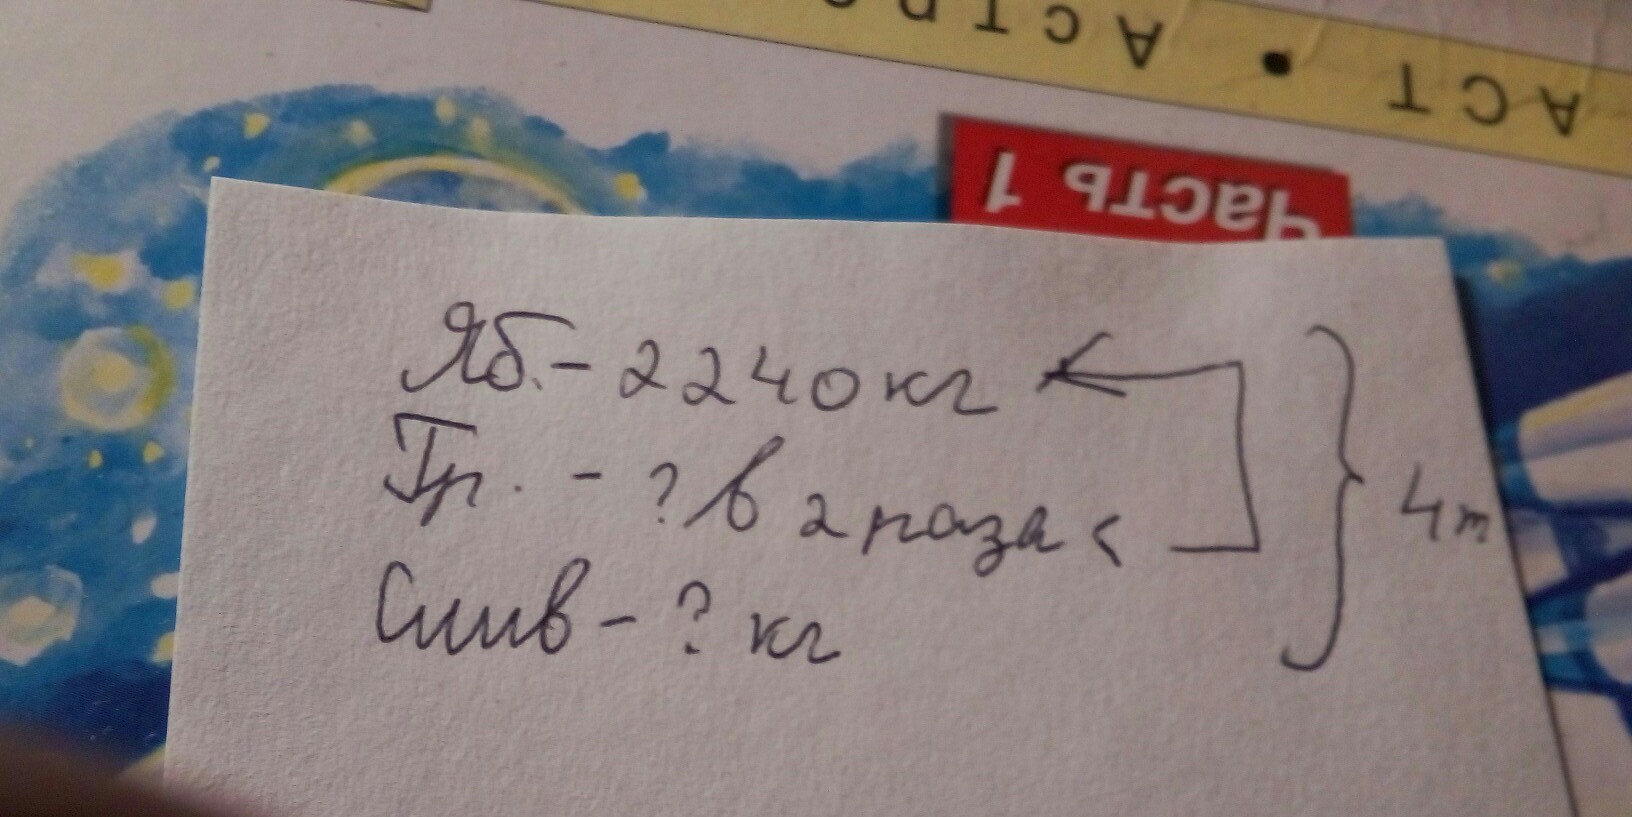 АСТ • Астре
Часть 1
Яб. - 2240 кг
Гр. - ? в 2 раза <
Слив - ? кг
4т